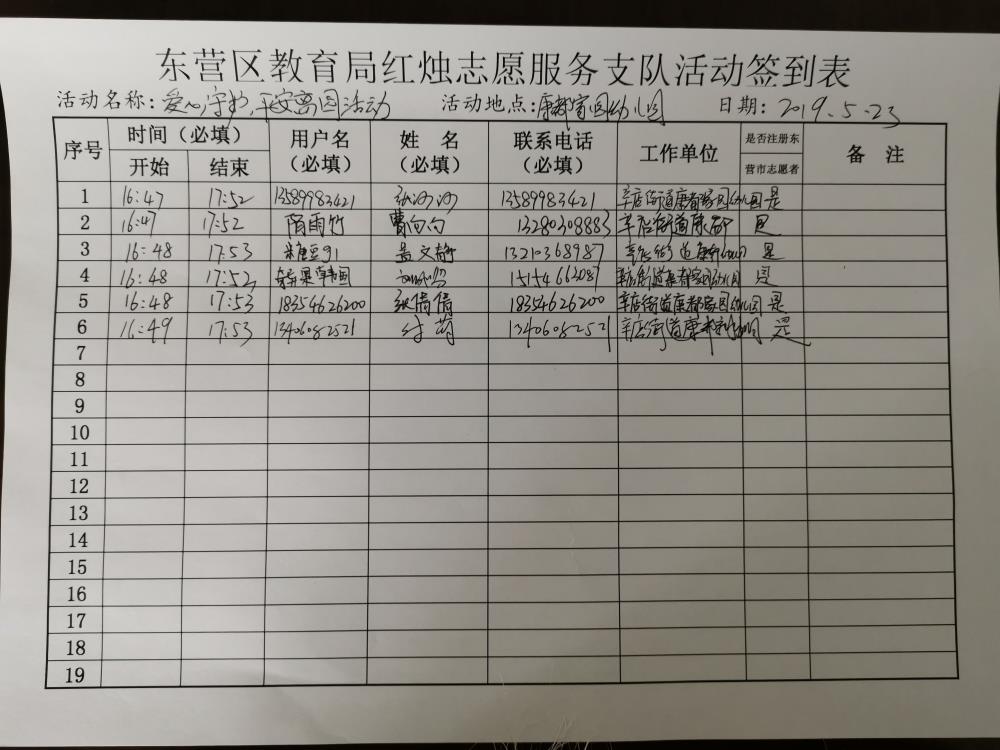 东营区教育局红烛志愿服务支队活动签到表
活动名称：爱心守护，平安离园活动 活动地点：康都家园幼儿园 日期：2019.5.23
序号 时间（必填） 用户名（必填） 姓 名（必填） 联系电话（必填） 工作单位 是否注册东营市志愿者 备 注
开始 结束
1 16:47 17:52 13589983421 13589983421 辛店街道康都家园幼儿园 是
2 16:47 17:52 隋雨竹 13280308883 辛店街道康都 是
3 16:48 17:53 米糖豆91 黄文静 13210368987 是
4 16:48 17:52 15154663087 辛店街道康都家园幼儿园 是
5 16:48 17:53 18354626200 张倩倩 18354626200 辛店街道康都家园幼儿园 是
6 16:49 17:53 13406082521 付萌 13406082521 辛店街道康都 是
7
8
9
10
11
12
13
14
15
16
17
18
19